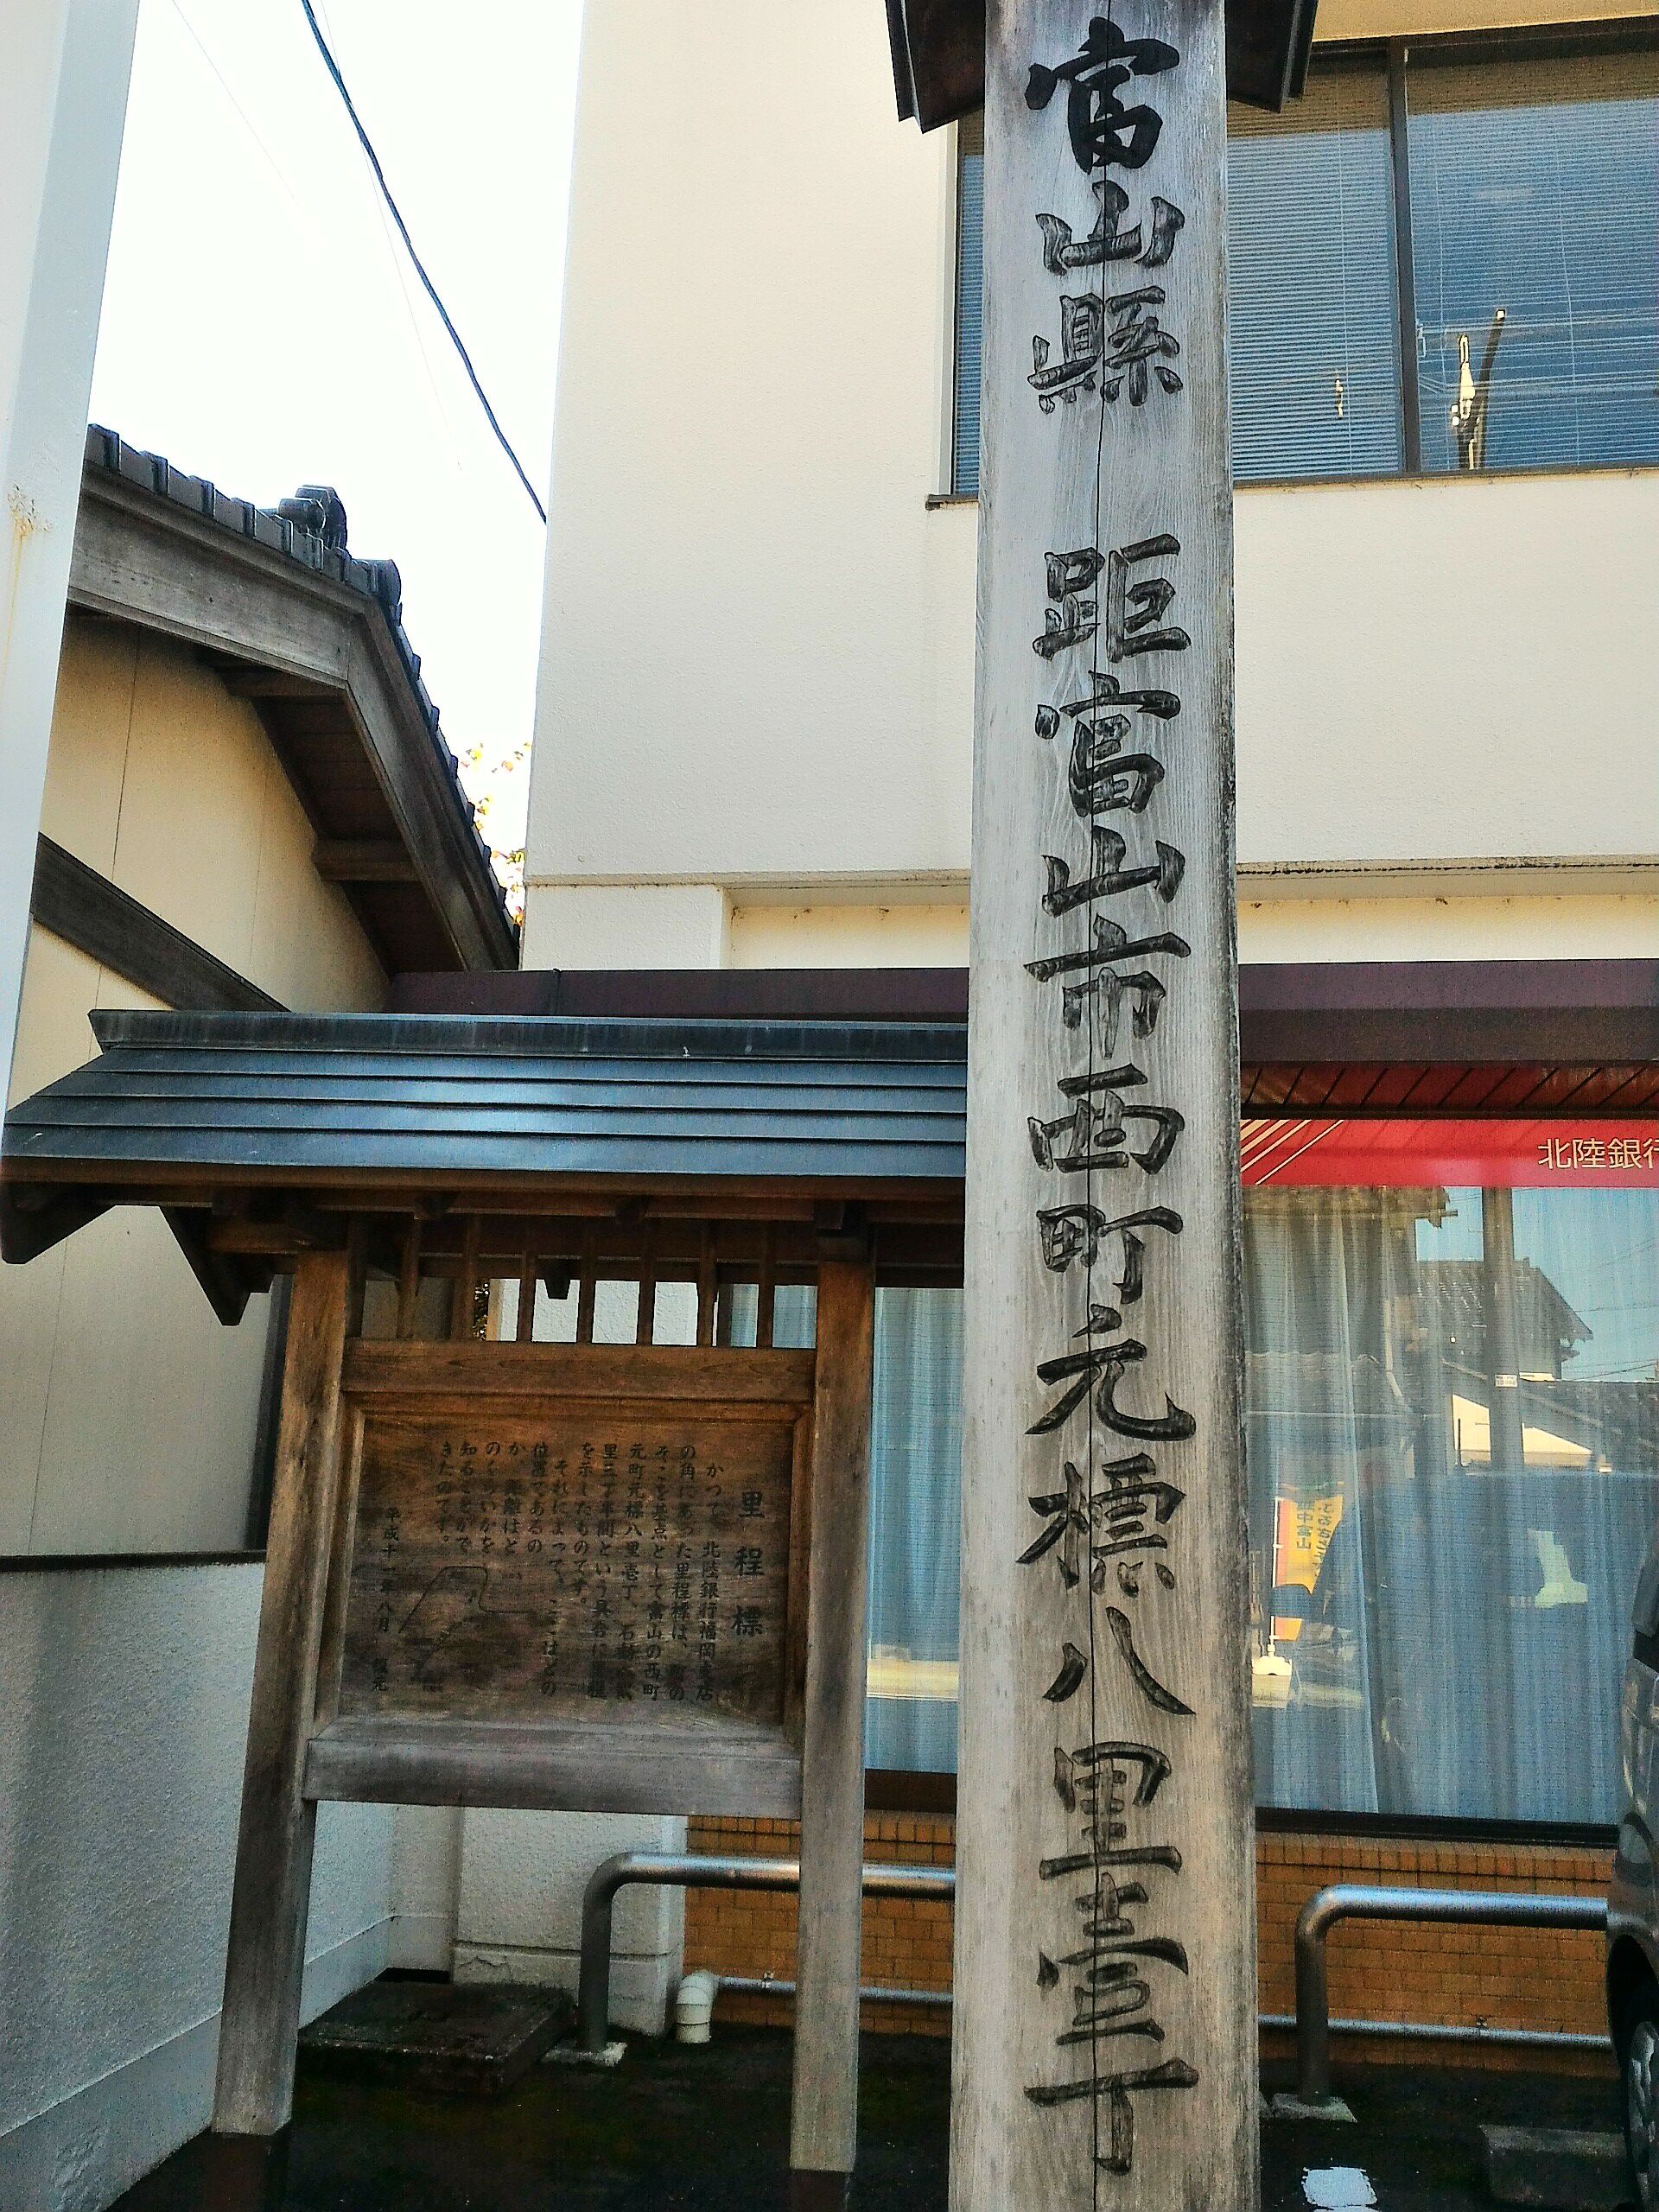 富山縣 距富山市西町元標八里壹丁
北陸銀行
里程標
かつて、北陸銀行福岡支店
の角にあった里程標は、
そこを基点として富山の西町
元町元標八里壱丁、石動
里三丁半間という具合に
を示したものです。
それによって、ここはどの
位置であるの
か、距離はど
のくらいかを
知ることがで
きたのです。
平成十一年八月